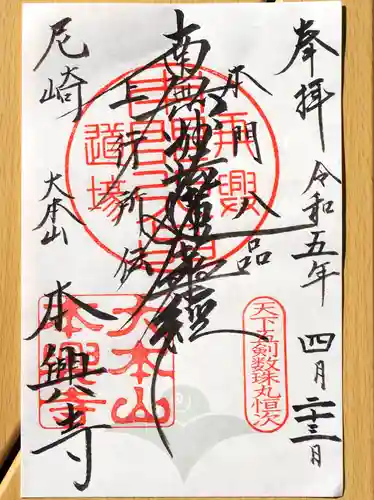 奉拝
令和五年
四月二十三日
本門八品
南無妙法蓮華経
上行所伝
尼崎
大本山
本興寺
道場
大本山
本興寺
天下五剣数珠丸恒次